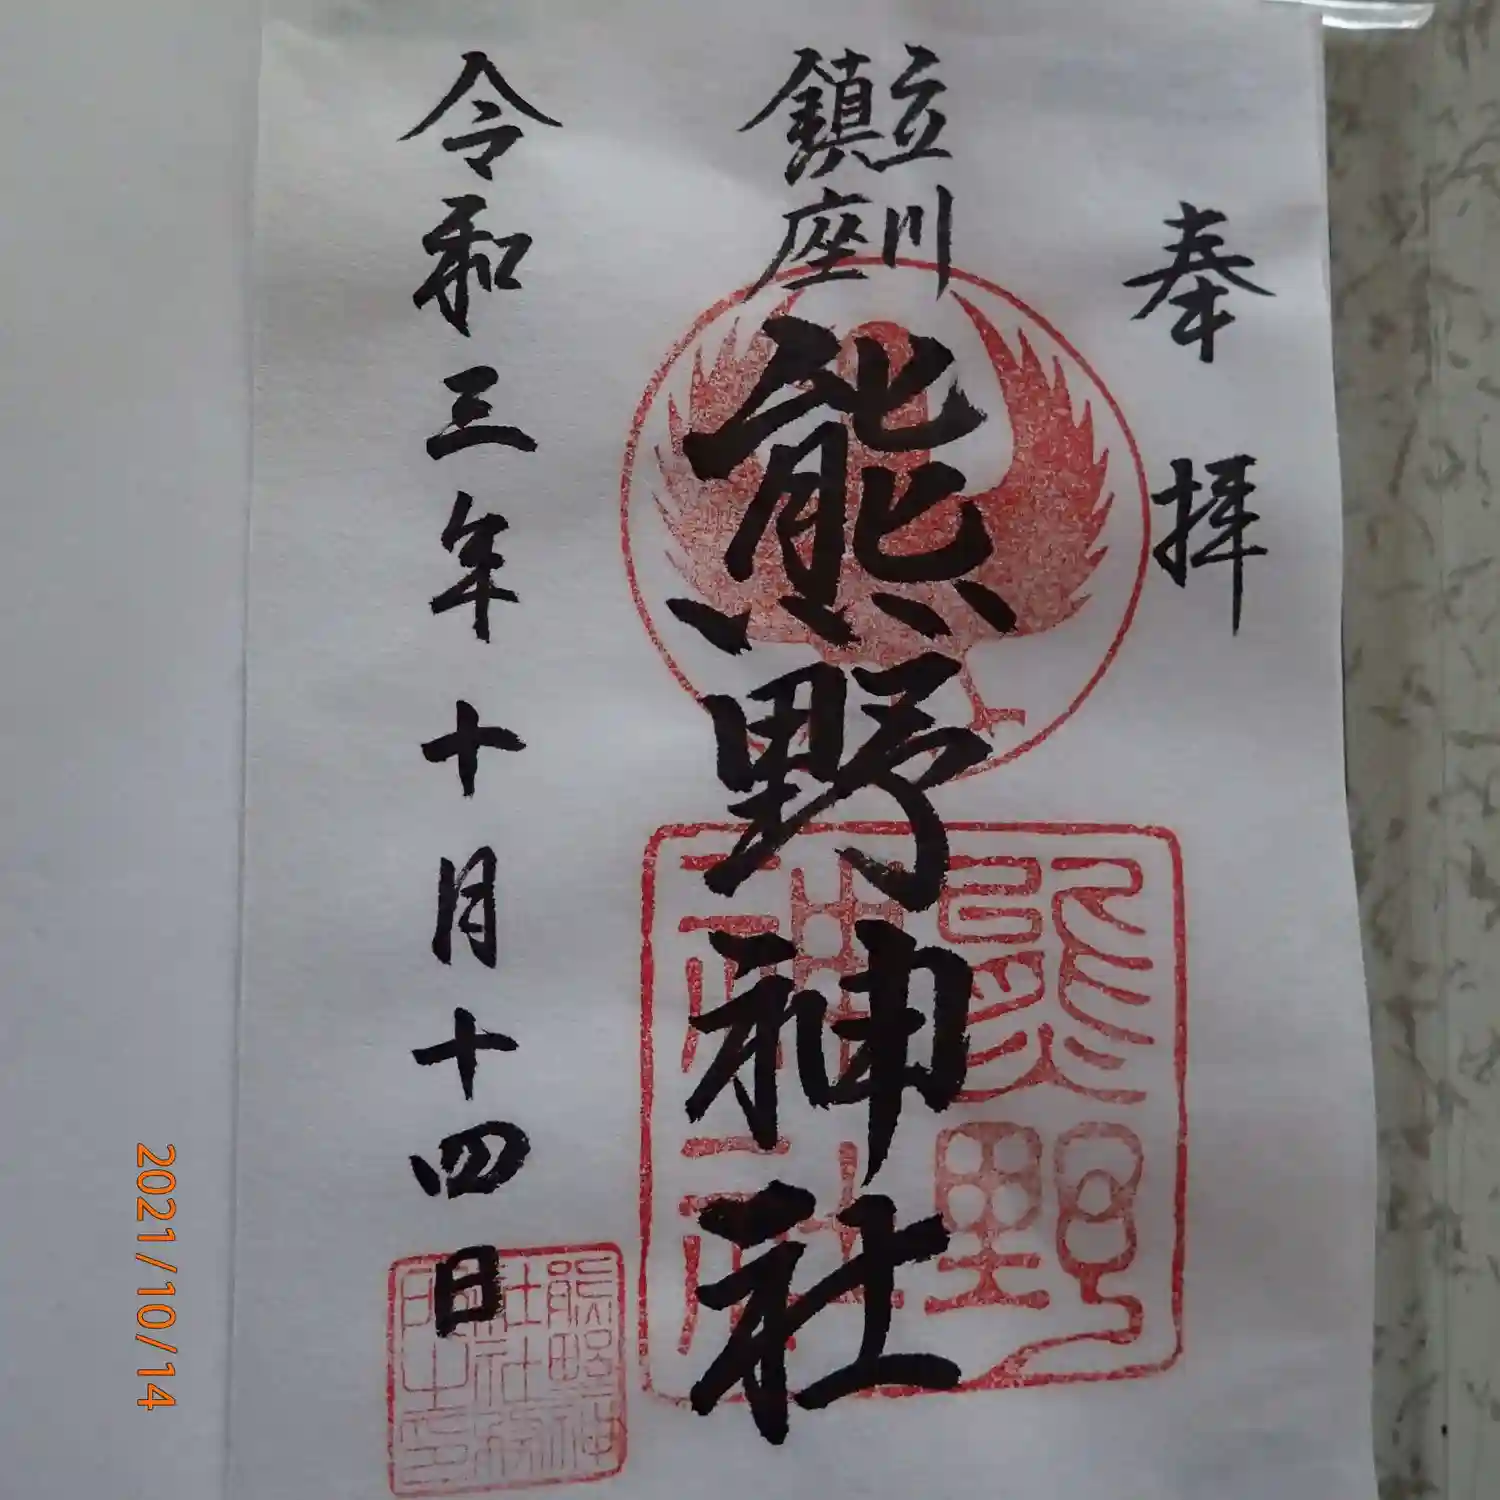 奉拝
立川
鎮座
熊野神社
令和三年十月十四日
熊野
神社
熊野神
社社務
所之印
2021/10/14